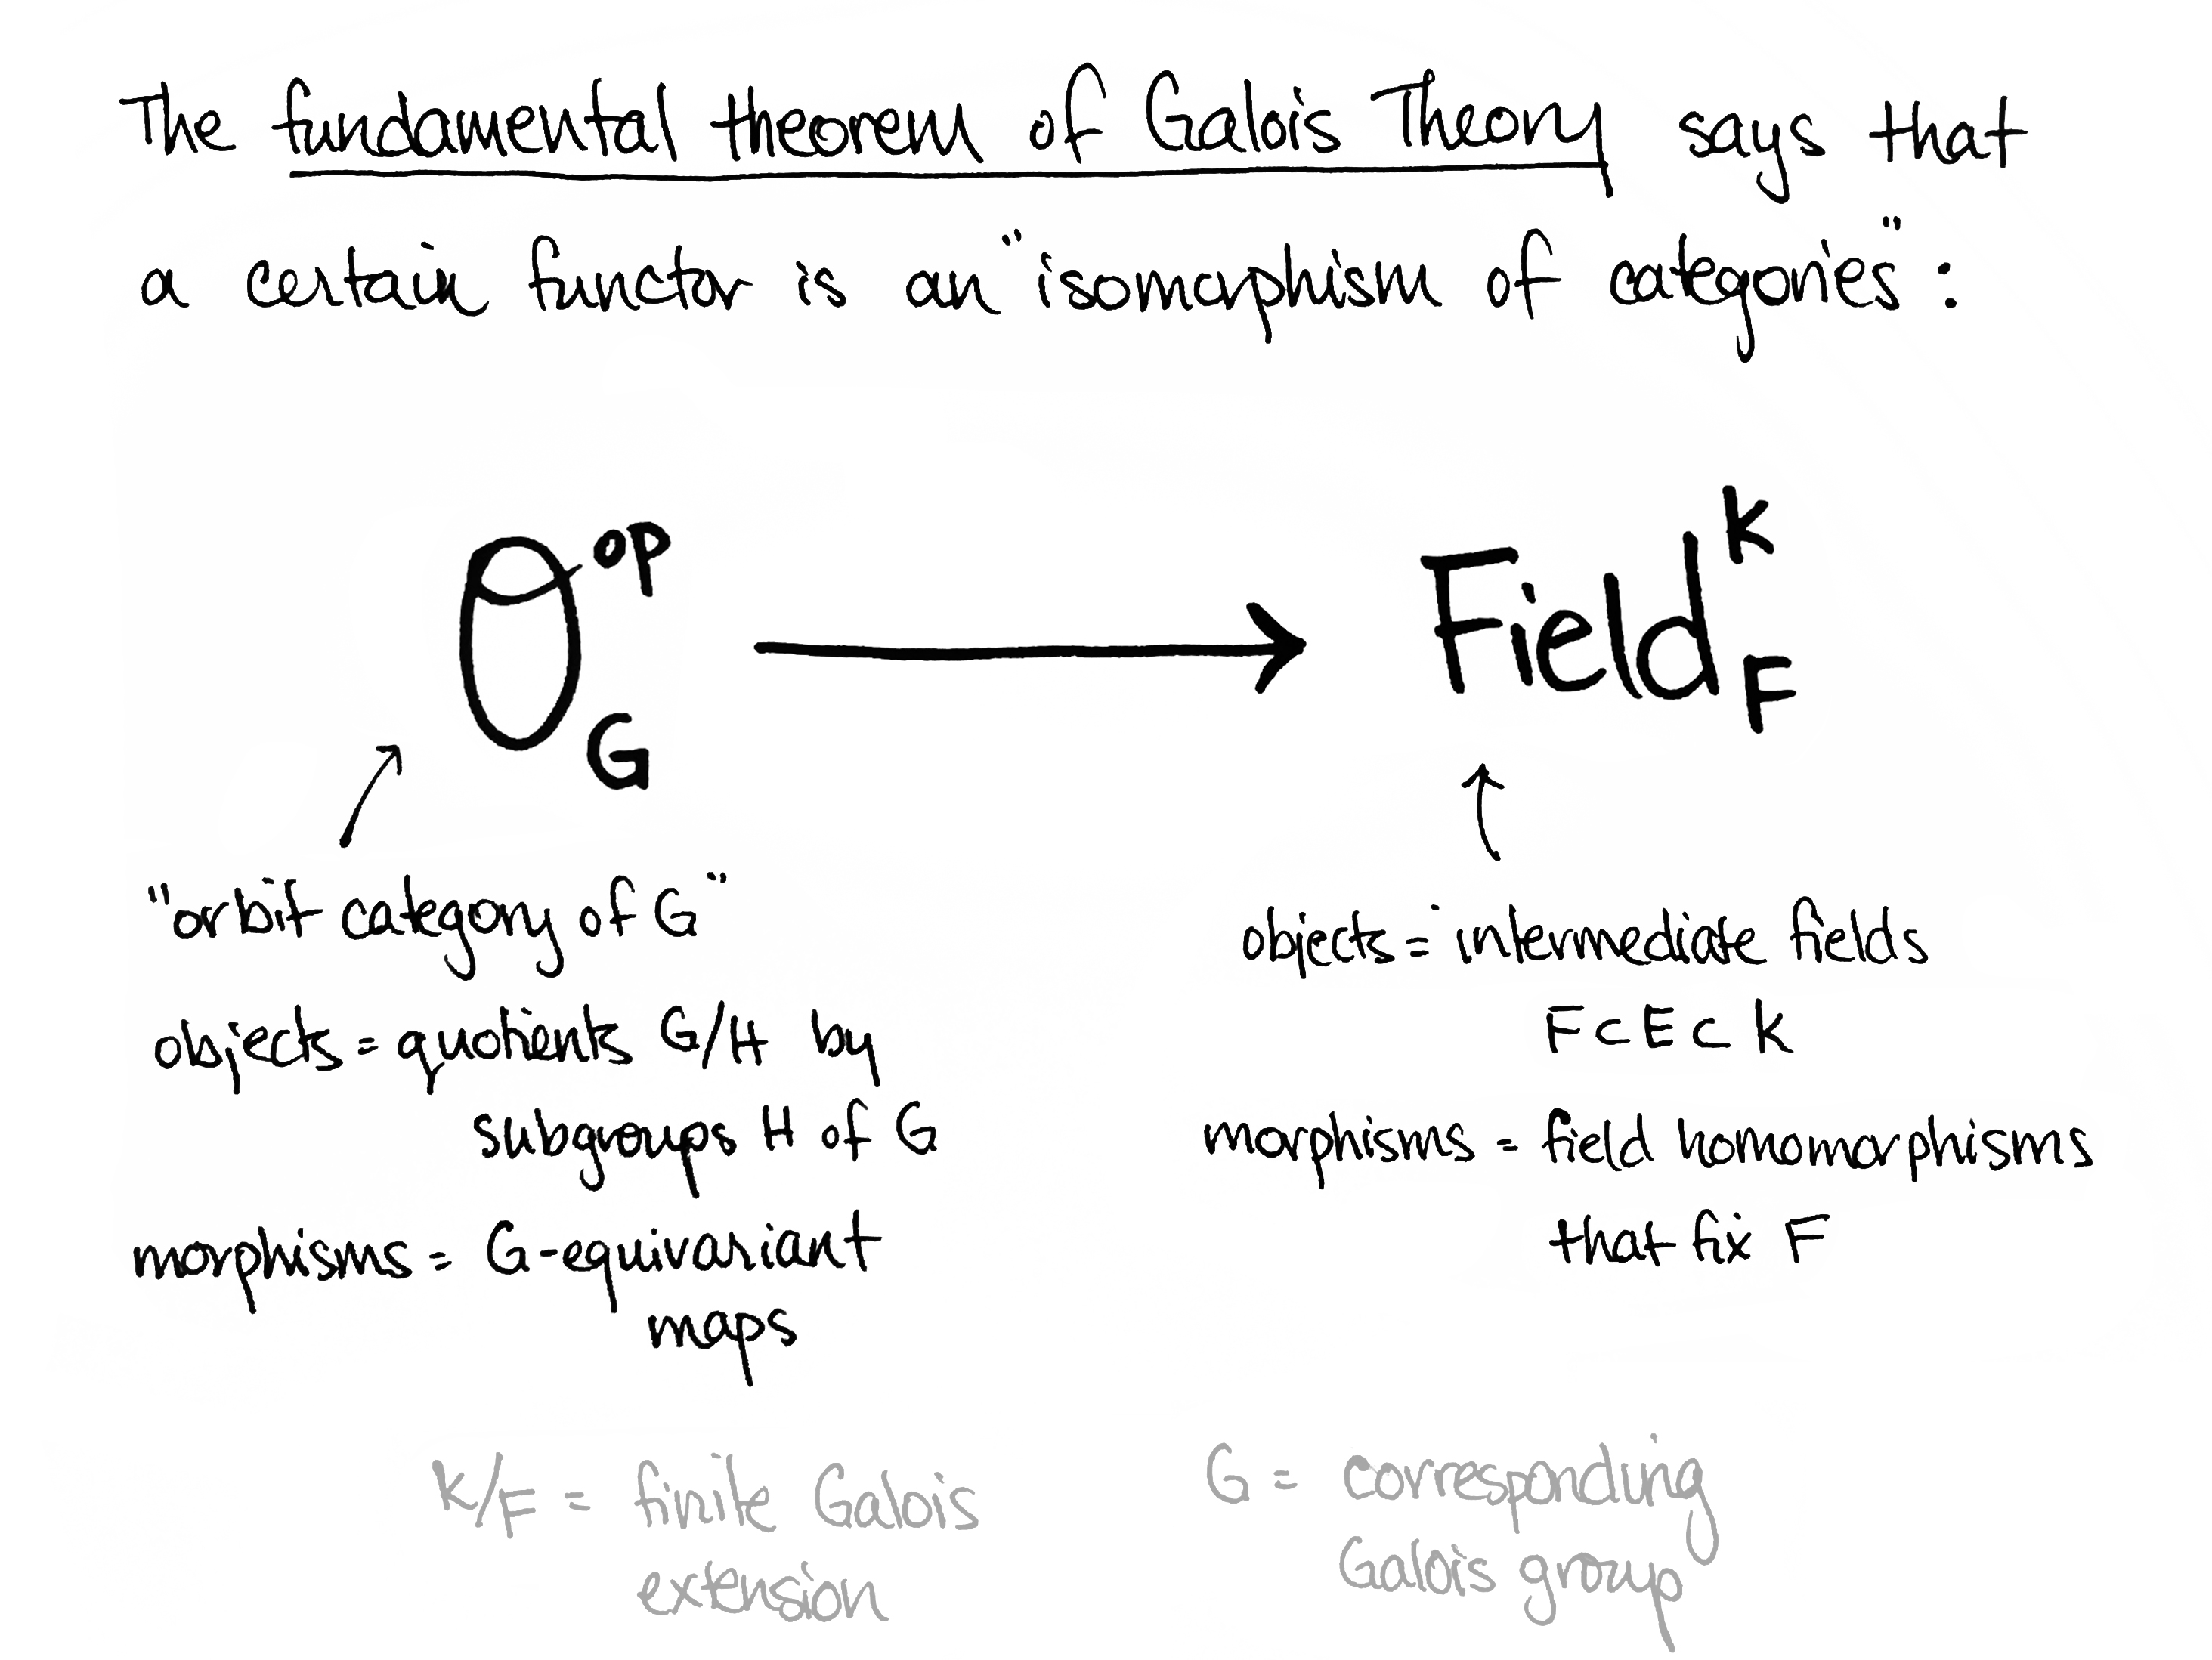 The fundamental theorem of Galois Theory says that
a certain functor is an "isomorphism of categories":
O^op_G → Field^K_F
"orbit category of G"
objects = quotients G/H by
subgroups H of G
morphisms = G-equivariant
maps
objects = intermediate fields
F ⊂ E ⊂ K
morphisms = field homomorphisms
that fix F
K/F = finite Galois
extension
G = corresponding
Galois group